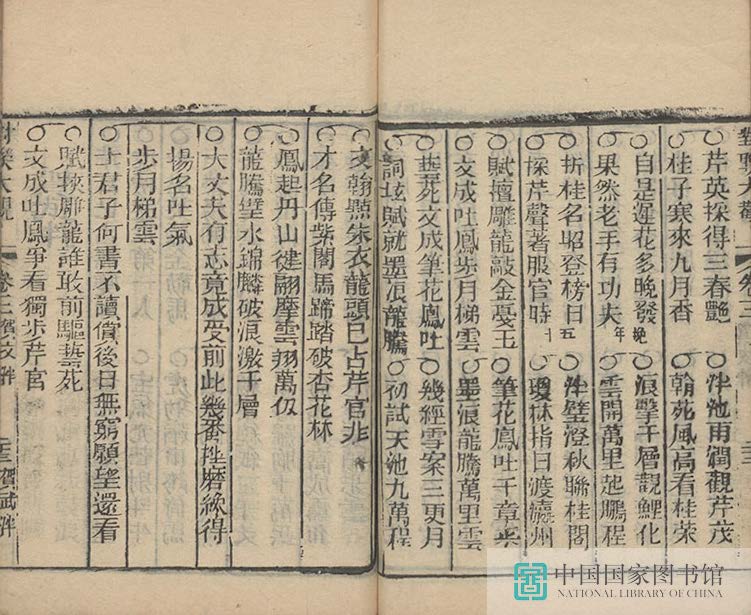 芹英採得三春艷 泮池雨潤觀芹茂
桂子寒來九月香 翰苑風高看桂榮
自是蓮花多晚發晚 浪擊千層觀鯉化
果然老手有功夫年 雲開萬里起鵬程
折桂名昭登榜日五 泮璧澄秋聯桂閣
採芹聲著服官時十 瓊林指日渡瀛州
賦擅雕龍敲金戛玉 筆花鳳吐千章采
文成吐鳳步月梯雲 墨浪龍騰萬里雲
花文成筆花鳳吐 幾經雪案三更月
詞垣賦就墨浪龍騰 初試天池九萬程
文翰點朱衣龍頭已占芹官非
才名傳紫閣馬蹄踏破杏花林
鳳起丹山健翮摩雲翔萬仭
龍騰璧水錦麟破浪激千層
大丈夫有志竟成受前此幾番挫磨纔得
揚名吐氣
步月梯雲
士君子何書不讀償後日無窮願望還看
賦擬雕龍誰敢前驅藝死
文成吐鳳爭看獨步芹官
對聯大觀 卷三
中国国家图书馆
NATIONAL LIBRARY OF CHINA